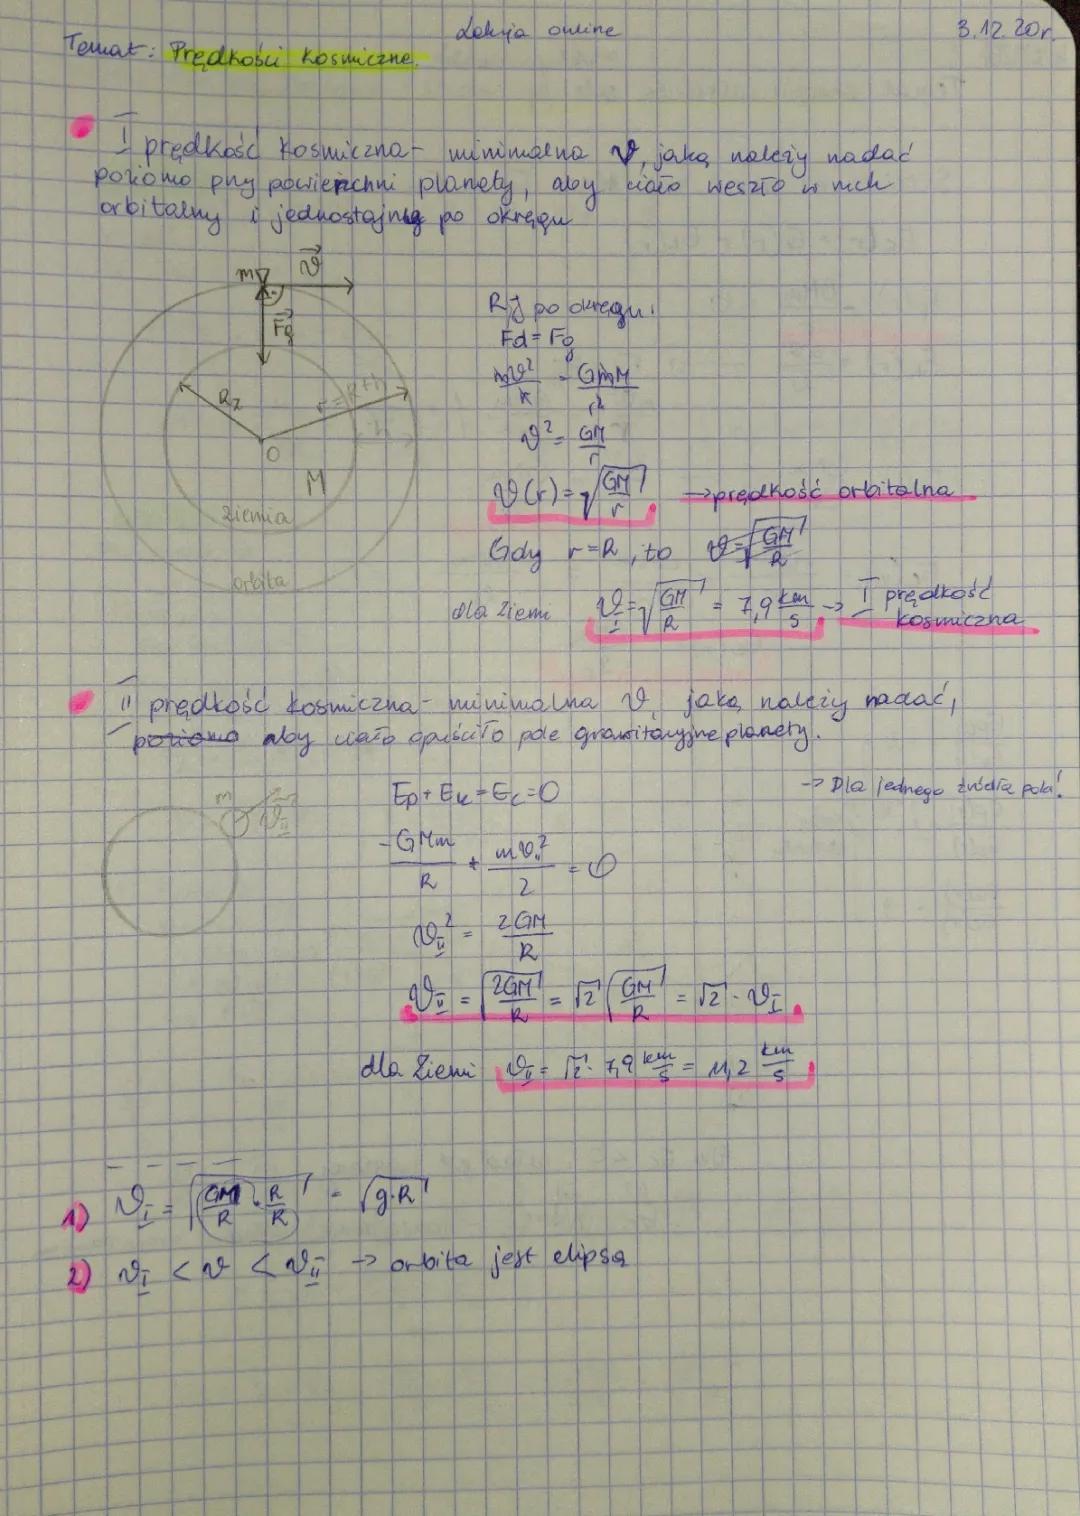 Lekcja online
3.12.20r.
Temat: Prędkości kosmiczne.
I prędkość kosmiczna - minimalna v, jaką należy nadać
poziomo przy powierzchni planety, aby ciało weszło w ruch
orbitalny i jednostajny po okręgu
m v⃗
F⃗g
Rz r=R+h
h
O
M
Ziemia
orbita
RJ po okręgu:
Fd = Fg
mv²/r = GmM/r²
v² = GM/r
v(r) = √(GM/r) → prędkość orbitalna
Gdy r=R, to v = √(GM/R)
dla Ziemi v_I = √(GM/R) = 7,9 km/s → I prędkość
kosmiczna
II prędkość kosmiczna - minimalna v, jaką należy nadać,
poziomo aby ciało opuściło pole grawitacyjne planety.
→ Dla jednego źródła pola!
m v⃗_II
Ep + Ek = Ec = 0
-GMm/R + mv_II²/2 = 0
v_II² = 2GM/R
v_II = √(2GM/R) = √2 √(GM/R) = √2 · v_I
dla Ziemi v_II = √2 · 7,9 km/s = 11,2 km/s
1) v_I = √(GM/R · R/R) = √(g·R)
2) v_I < v < v_II → orbita jest elipsą